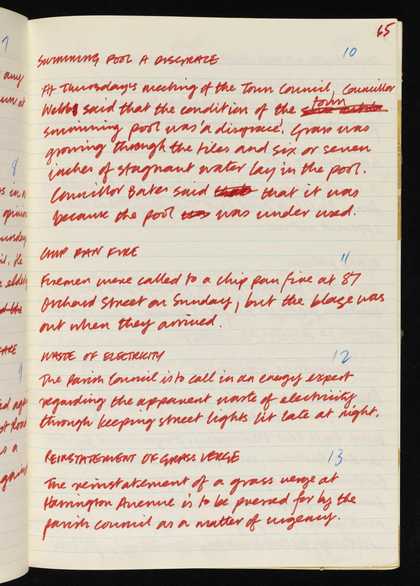 65
10
SWIMMING POOL A DISGRACE
At Thursday's meeting of the Town Council, Councillor
Webb said that the condition of the town
swimming pool was 'a disgrace'. Grass was
growing through the tiles and six or seven
inches of stagnant water lay in the pool.
Councillor Bates said that that it was
because the pool was was under used.
CHIP PAN FIRE
11
Firemen were called to a chip pan fire at 87
Orchard Street on Sunday, but the blaze was
out when they arrived.
WASTE OF ELECTRICITY
12
The Parish Council is to call in an energy expert
regarding the apparent waste of electricity
through keeping street lights lit late at night.
REINSTATEMENT OF GRASS VERGE
13
The reinstatement of a grass verge at
Harrington Avenue is to be pressed for by the
parish council as a matter of urgency.